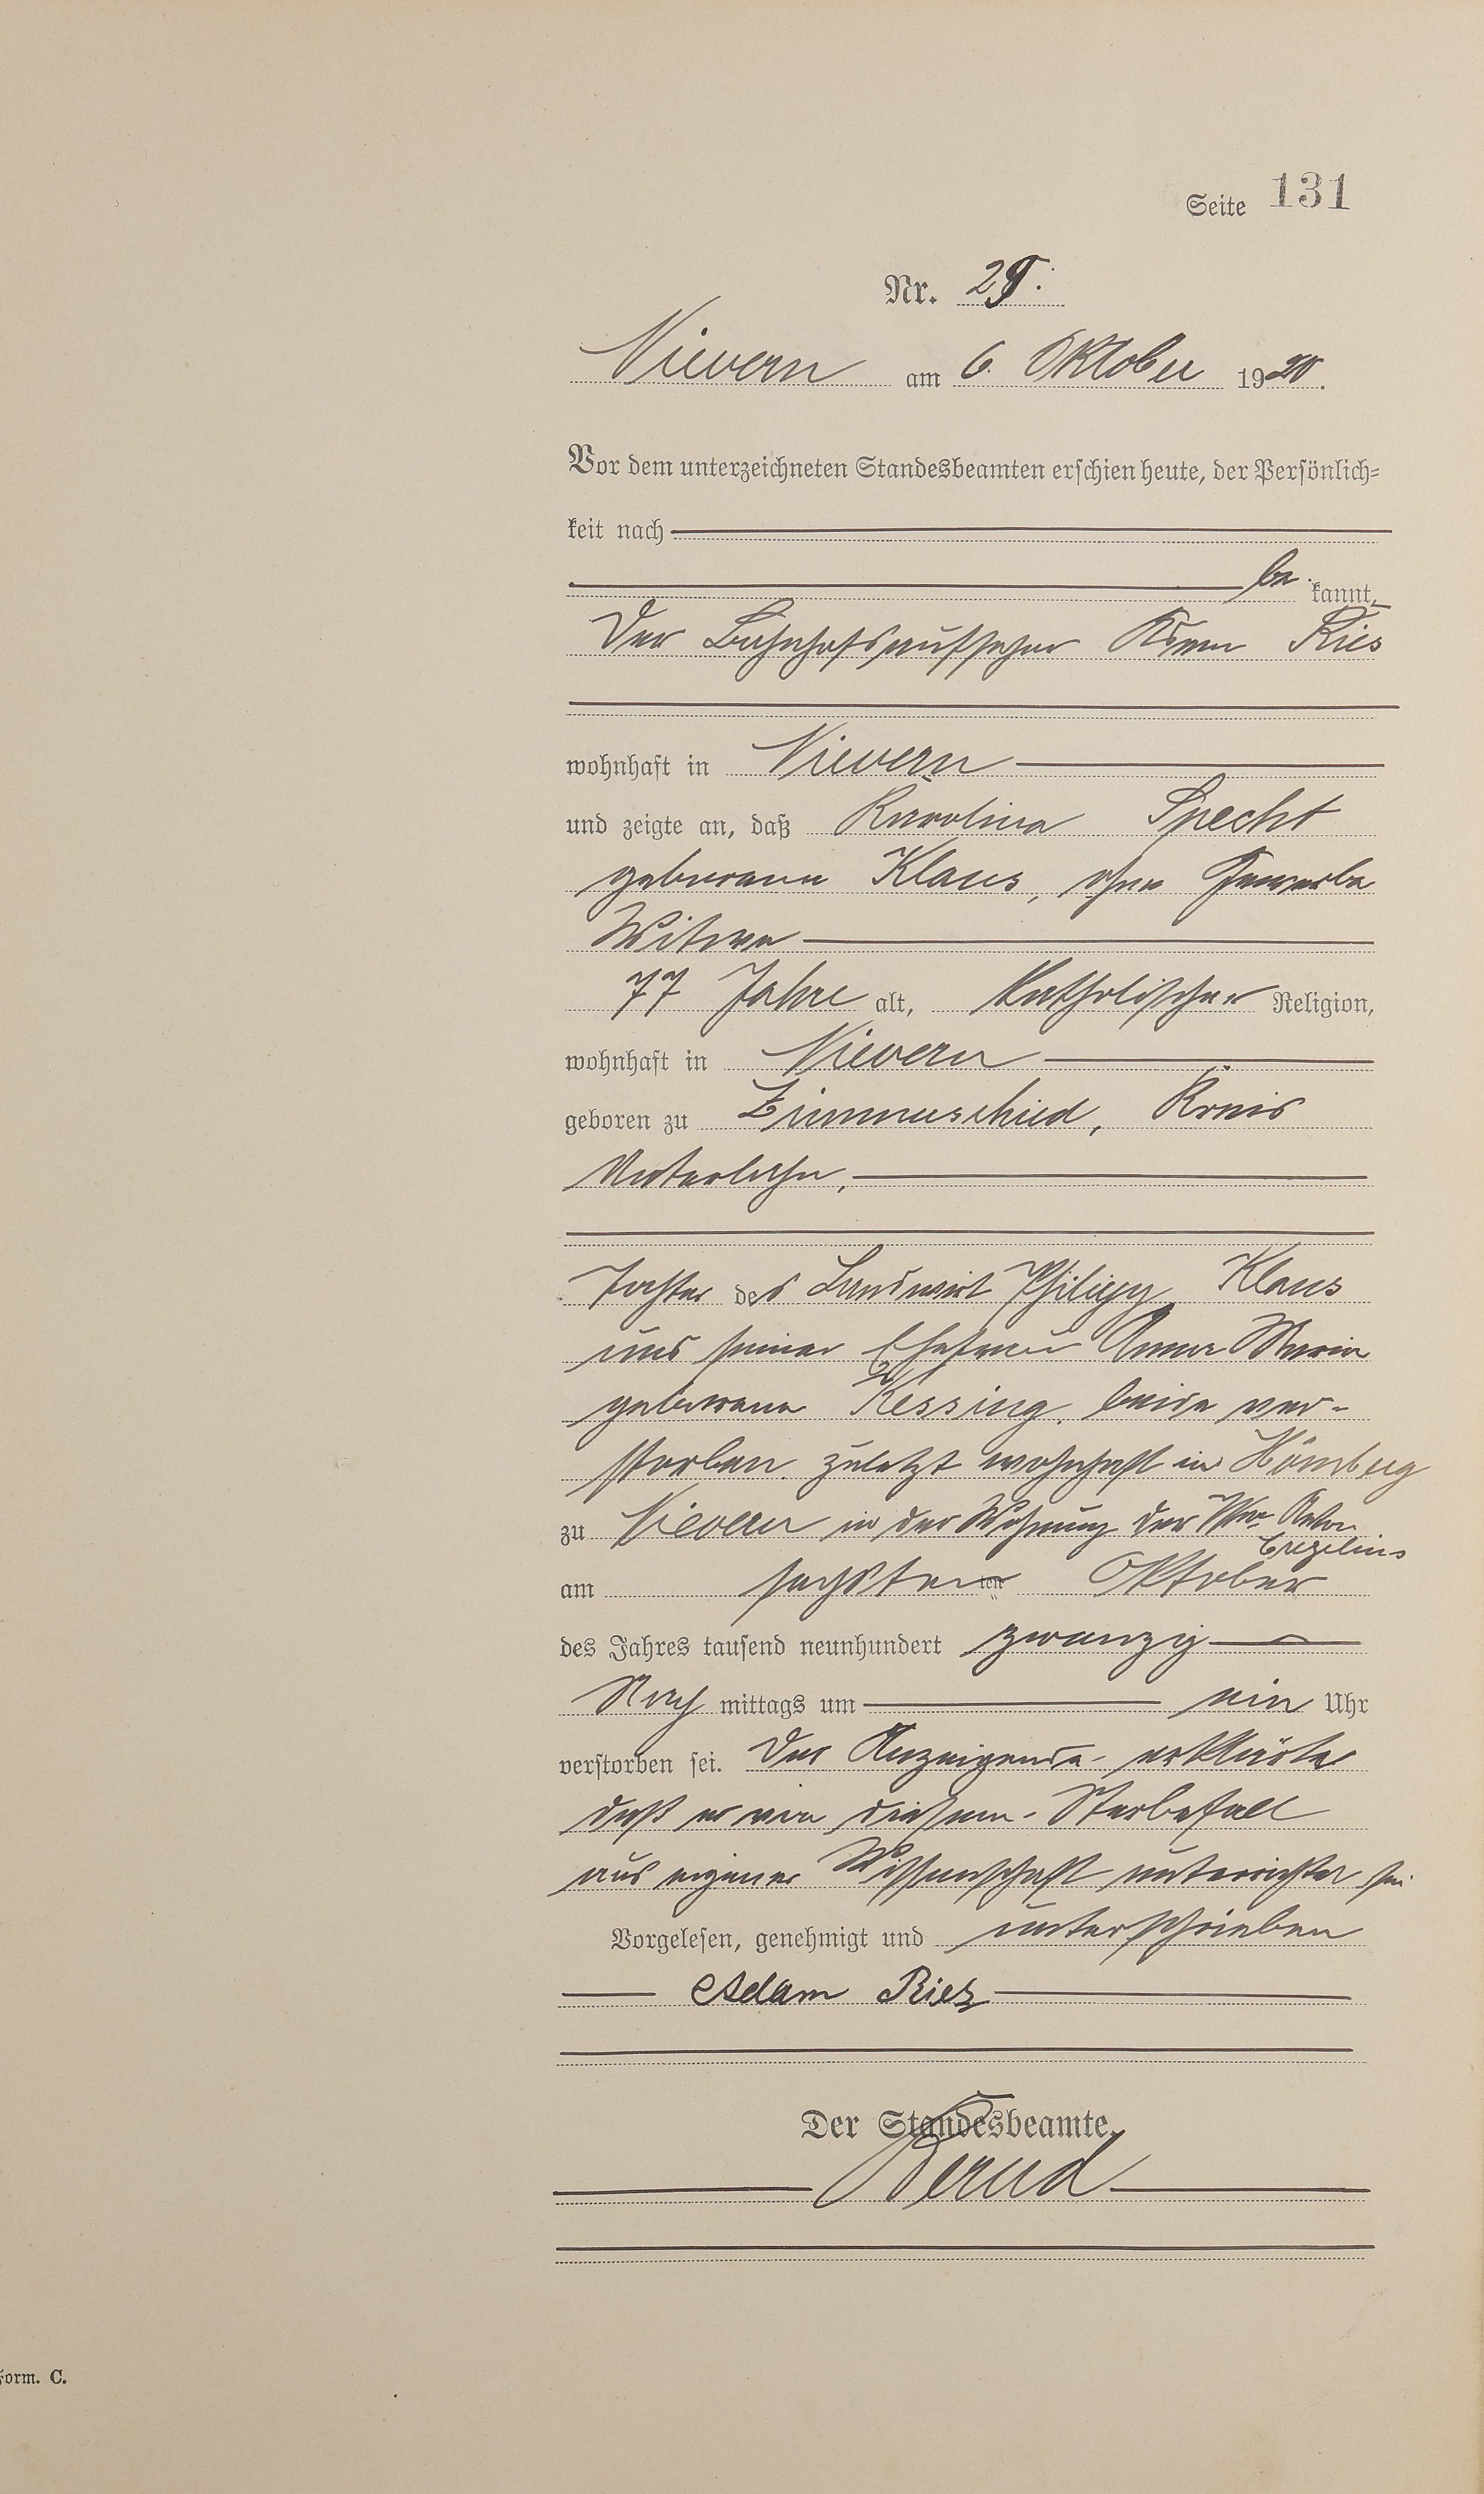 Seite 131
Nr. 29.
Nievern am 6. Oktober 1920.
Vor dem unterzeichneten Standesbeamten erschien heute, der Persönlich-
keit nach
be kannt,
Der Bahnhofsaufseher Adam Ries
wohnhaft in Nievern
und zeigte an, daß Karolina Specht
geborene Klaus, ohne Gewerbe
Witwe
77 Jahre alt, katholischer Religion,
wohnhaft in Nievern
geboren zu Zimmerschied, Kreis
Unterlahn,
Tochter des Landwirt Philipp Klaus
und seiner Ehefrau Anna Maria
geborene Kessing, beide ver-
storben, zuletzt wohnhaft in Hömberg
zu Nievern in der Wohnung der Wwe. Anton
am sechsten ten Oktober
des Jahres tausend neunhundert zwanzig
Nach mittags um ein Uhr
verstorben sei. Der Anzeigende erklärte
daß er von diesem Sterbefall
aus eigener Wissenschaft unterrichtet sei
Vorgelesen, genehmigt und unterschrieben
Adam Ries
Der Standesbeamte.
Bernd
Form. C.